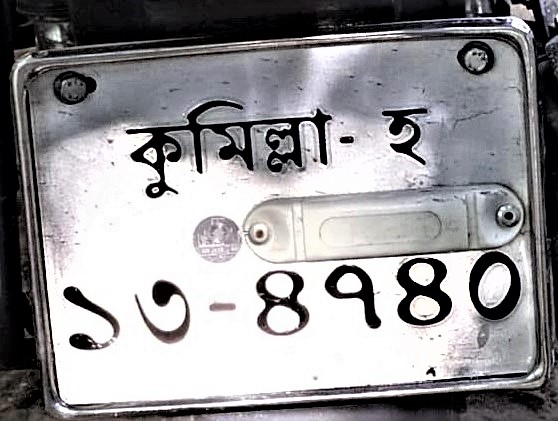 কুমিল্লা- হ
১৩-৪৭৪০